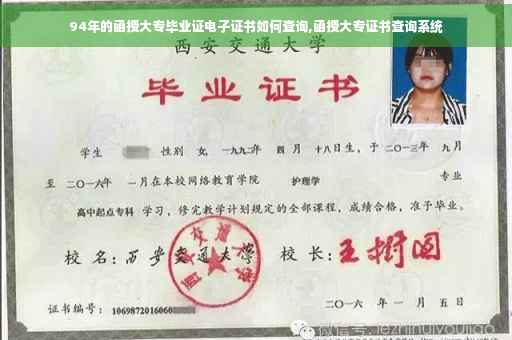 94年的函授大专毕业证电子证书如何查询,函授大专证书查询系统
西安交通大学
毕业证书
学生 性别 女, 一九九二年 四月 十八日生, 于二〇一三年 九月
至 二〇一六年 一月在本校网络教育学院 护理学 专业
高中起点专科 学习, 修完教学计划规定的全部课程, 成绩合格, 准予毕业。
校 名: 西安交通大学 校 长: 王树国
西安交通大学
证书编号: 1069872016060
二〇一六 年 一 月 五 日
微信号: jiezhihuiyoujiao